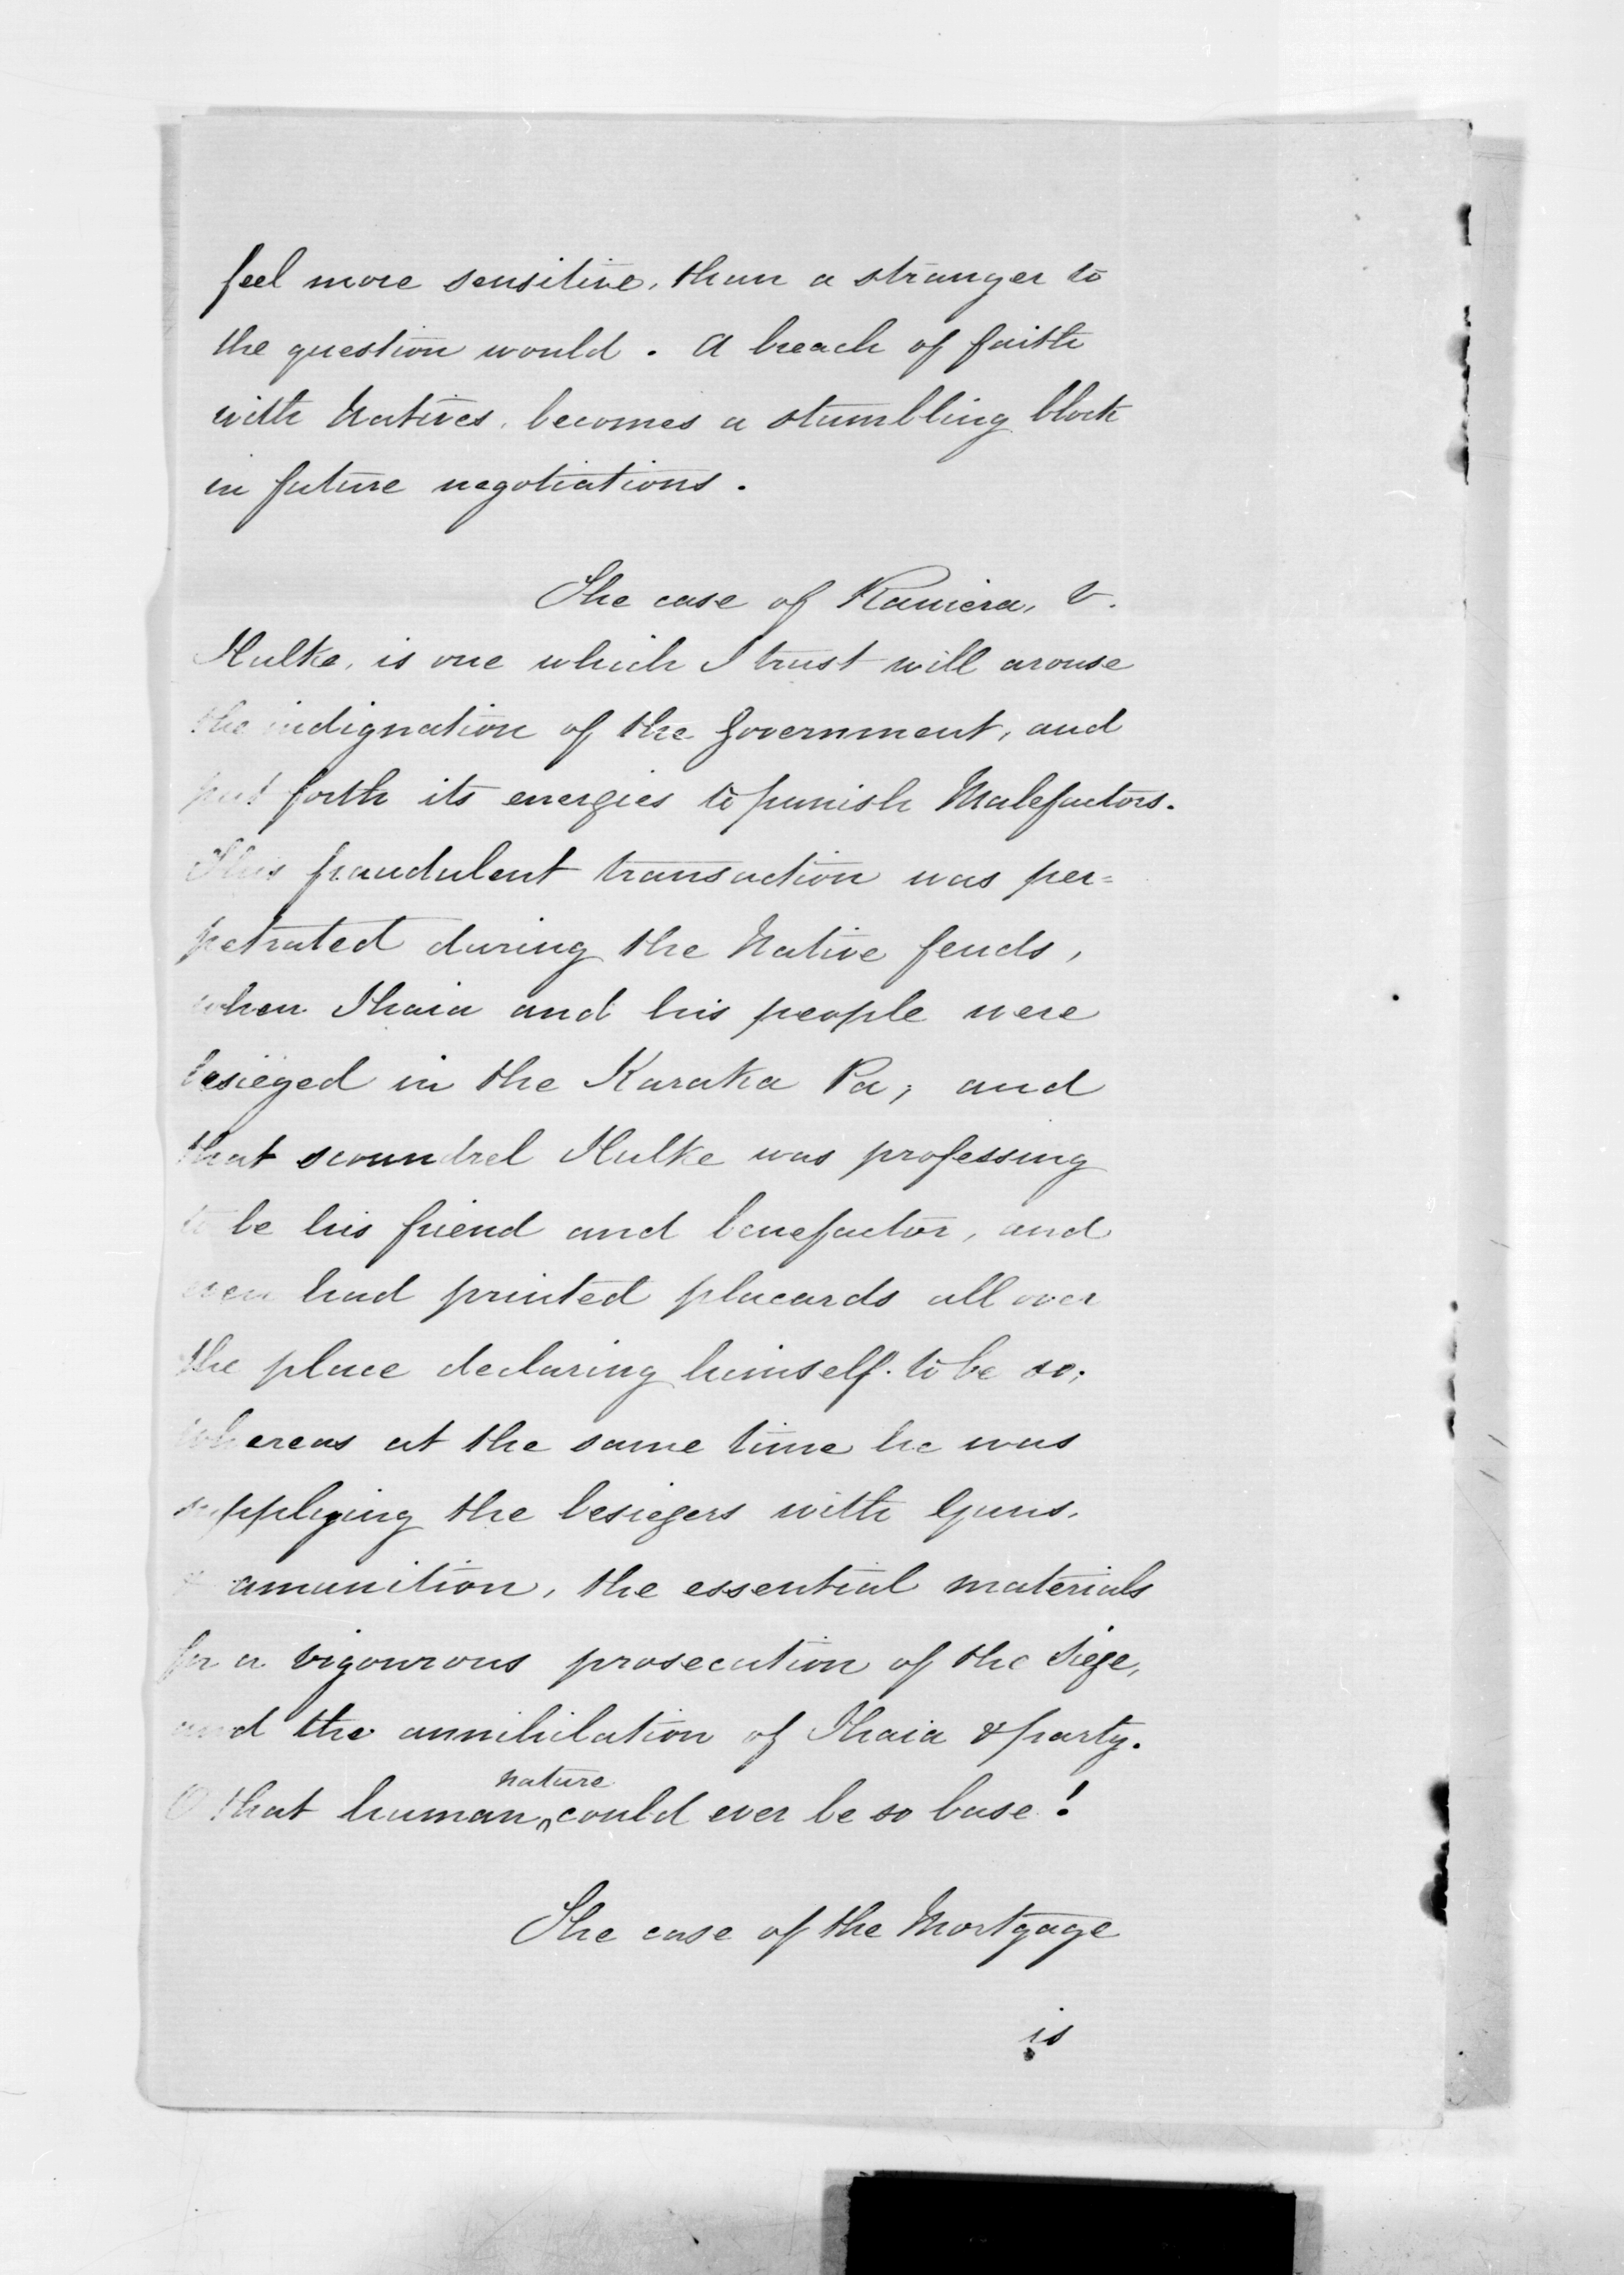 feel more sensitive, than a stranger to
the question would. A breach of faith
with Natives, becomes a stumbling block
in future negotiations.
The case of Raniera, v.
Hulke, is one which I trust will arouse
the indignation of the Government, and
put forth its energies to punish Malefactors.
This fraudulent transaction was per=
petrated during the Native feuds,
when Ihaia and his people were
besieged in the Karaka Pa; and
that scoundrel Hulke was professing
to be his friend and benefactor, and
even had printed placards all over
the place declaring himself to be so;
whereas at the same time he was
supplying the besiegers with Guns,
& amunition, the essential materials
for a vigourous prosecution of the Siege,
and the annihilation of Ihaia & party.
O that human nature could ever be so base!
The case of the Mortgage
is